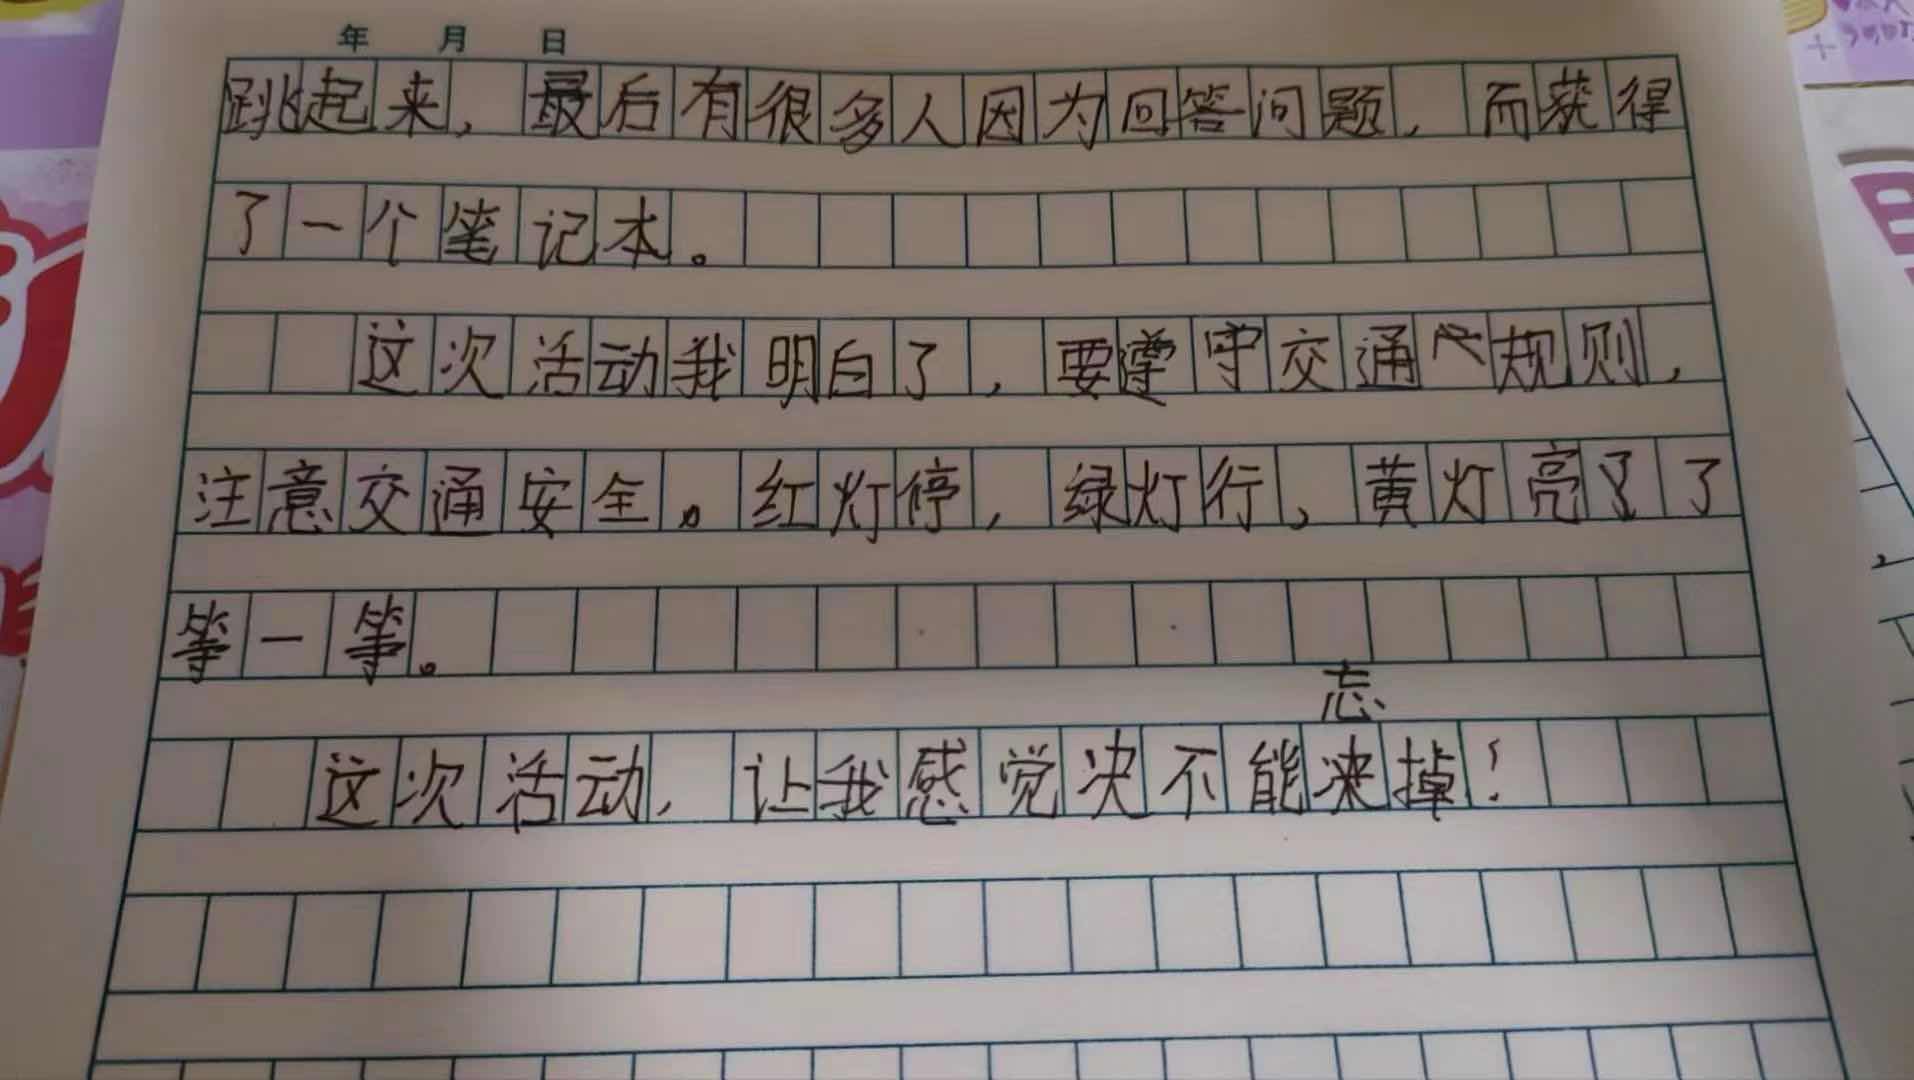 年 月 日
跳起来，最后有很多人因为回答问题，而获得
了一个笔记本。
这次活动我明白了，要遵守交通规则，
注意交通安全。红灯停，绿灯行，黄灯亮了了
等一等。
忘
这次活动，让我感觉决不能掉！